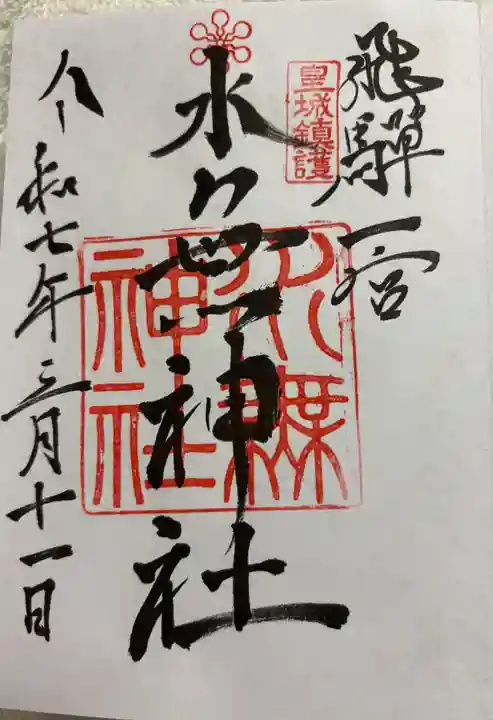 飛驒一宮
皇城鎮護
水無神社
水無
神社
令和七年三月十一日